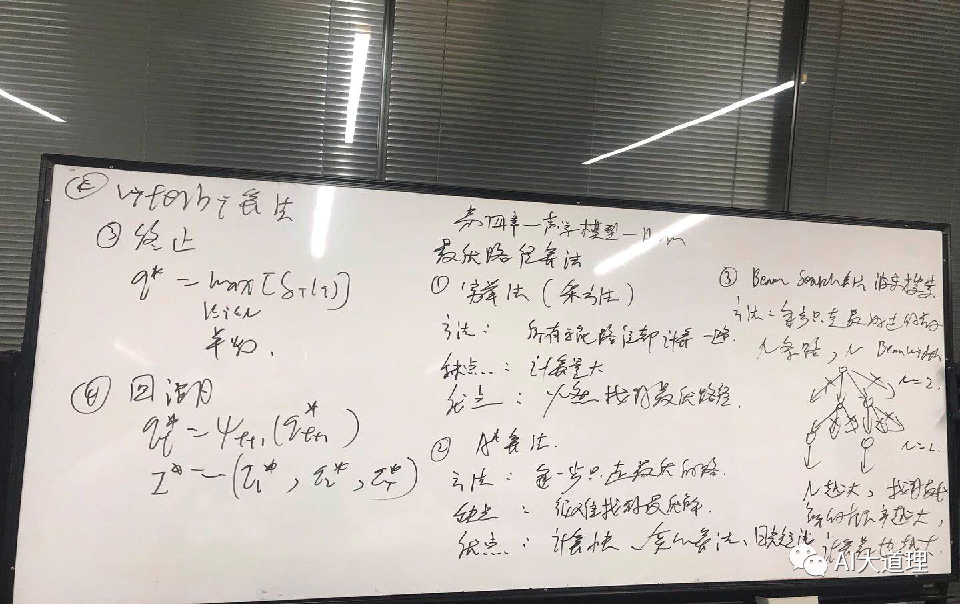 Viterbi算法
③ 终止
q* = max[δT(i)]
1≤i≤N
④ 回溯
qt* = ψt+1(qt+1*)
I* = (i1*, i2*, iT*)
第四章—声学模型—
最优路径算法
① 穷举法(暴力法)
方法: 所有可能路径都计算一遍
缺点: 计算量大
优点: 必然找到最优路径
② A*算法
方法: 每一步只走最优的路.
缺点: 很难找到最优解.
优点: 计算快、贪心算法、
③ Beam Search 搜索
方法: 每步只走最
N条路, N Beamwidth
n=2.
n=2.
N越大, 找到最优
解的 率越大,
计算量也越大
AI大道理